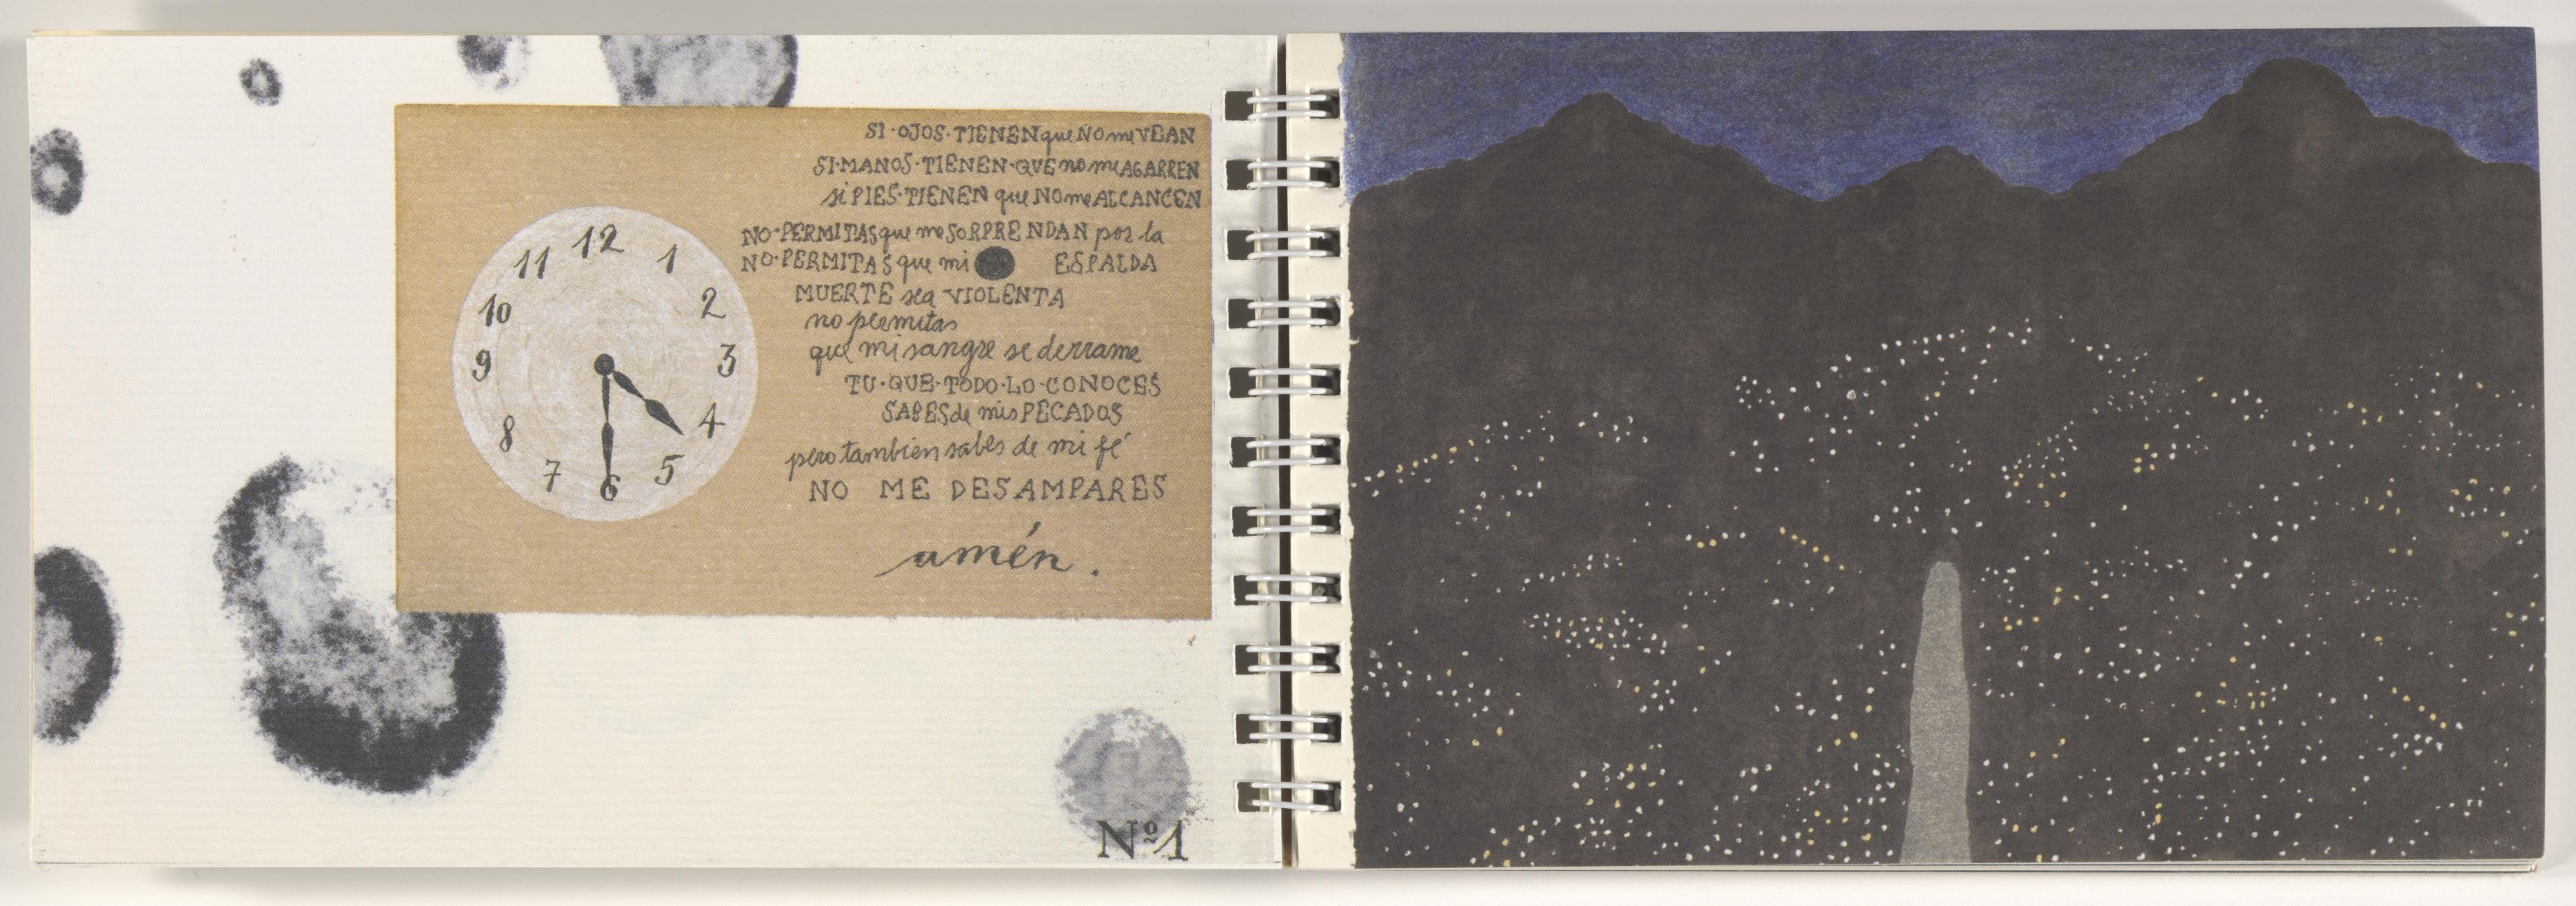 SI·OJOS·TIENEN que NO me VEAN
SI·MANOS·TIENEN·QUE no me AGARREN
si PIES·TIENEN que NO me ALCANCEN
NO·PERMITAS que me SORPRENDAN por la
NO·PERMITAS que mi ESPALDA
MUERTE sea VIOLENTA
no permitas
que mi sangre se derrame
TU·QUE·TODO·LO·CONOCES
SABES de mis PECADOS
pero tambien sabes de mi fé
NO ME DESAMPARES
amén.
12
11 1
10 2
9 3
8 4
7 5
6
Nº1